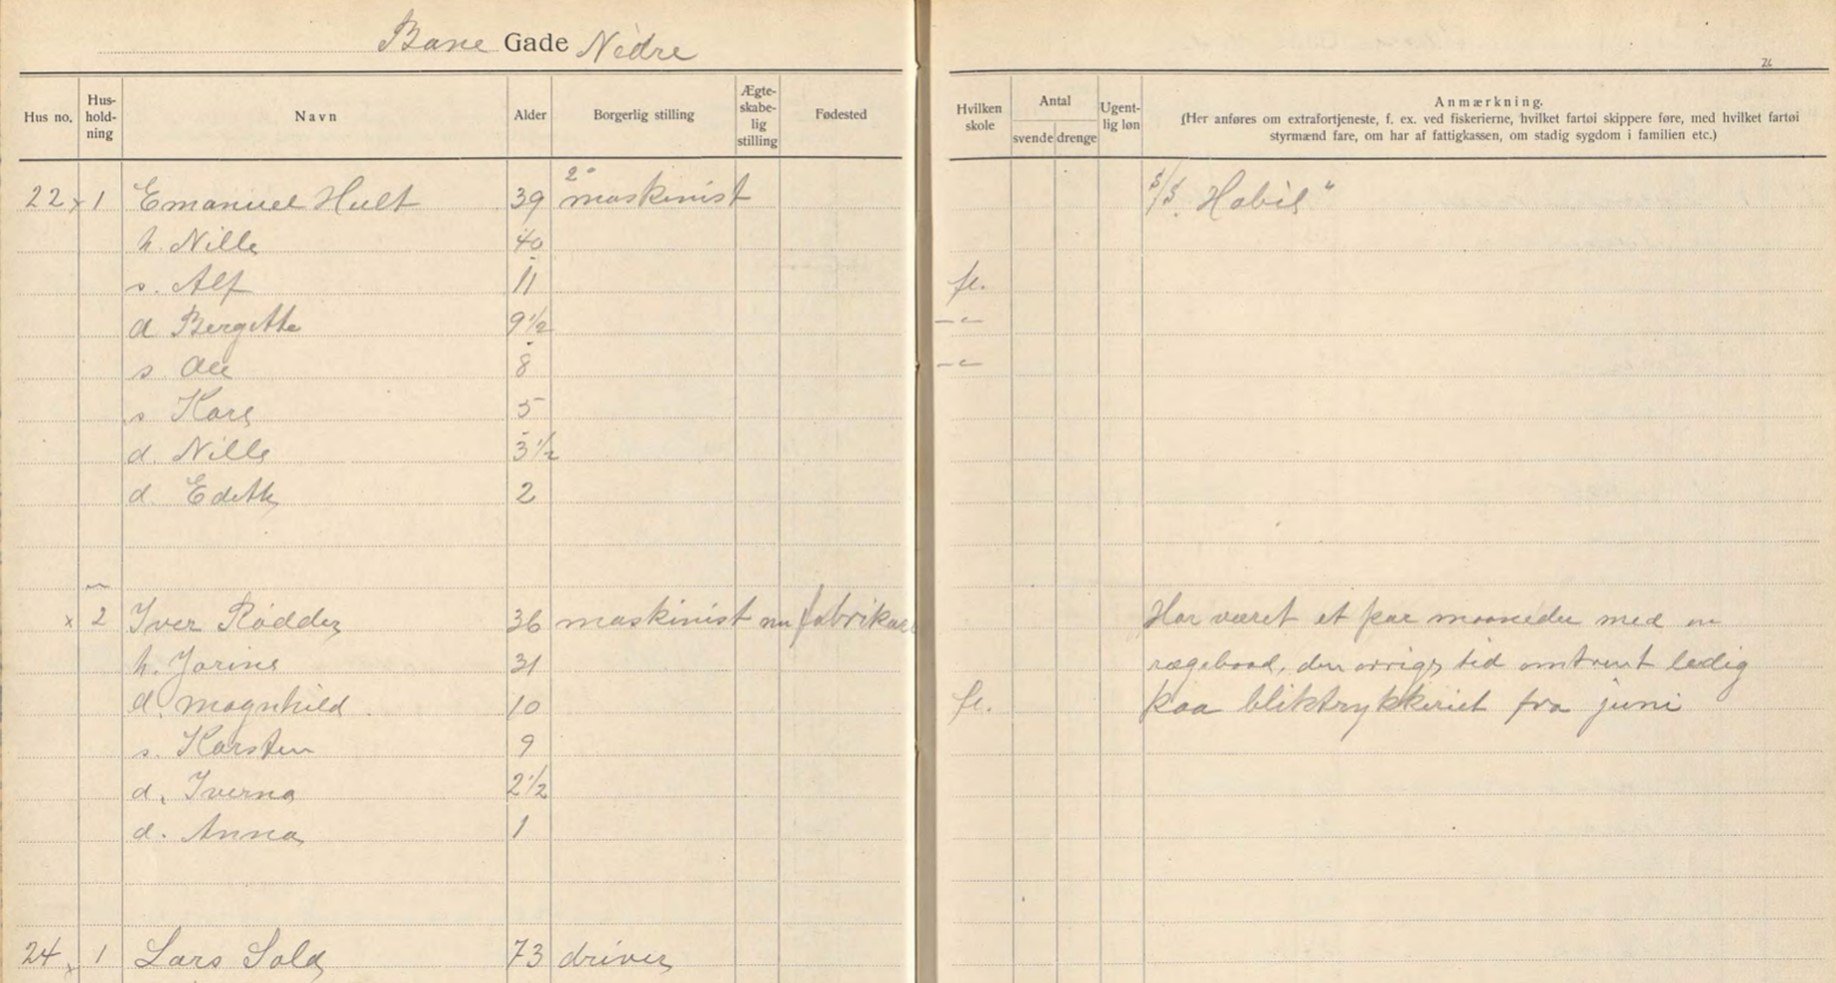 Bane Gade Nedre
26
Hus no. Hus-hold-ning Navn Alder Borgerlig stilling Ægte-skabe-lig stilling Fødested Hvilken skole Antal svende drenge Ugent-lig løn Anmærkning.
(Her anføres om extrafortjeneste, f. ex. ved fiskerierne, hvilket fartøi skippere føre, med hvilket fartøi
styrmænd fare, om har af fattigkassen, om stadig sygdom i familien etc.)
22 x 1 Emanuel Hult 39 2° maskinist S/S. "Habil"
h. Nille 40
s. Alf 11 fl.
d Bergitte 9 1/2 -"-
s 8 -"-
s Kare 5
d. Nille 3 1/2
d Edith 2
x 2 Iver Rödder 36 maskinist nu fabrikar Har været et par maaneder med en
h. Jorine 31 den tid omtrent ledig
d. Magnhild 10 fl. paa bliktrykkeriet fra juni
s. Karsten 9
d. Iverna 2 1/2
d. Anna 1
24 x 1 Lars Sola 73 driver